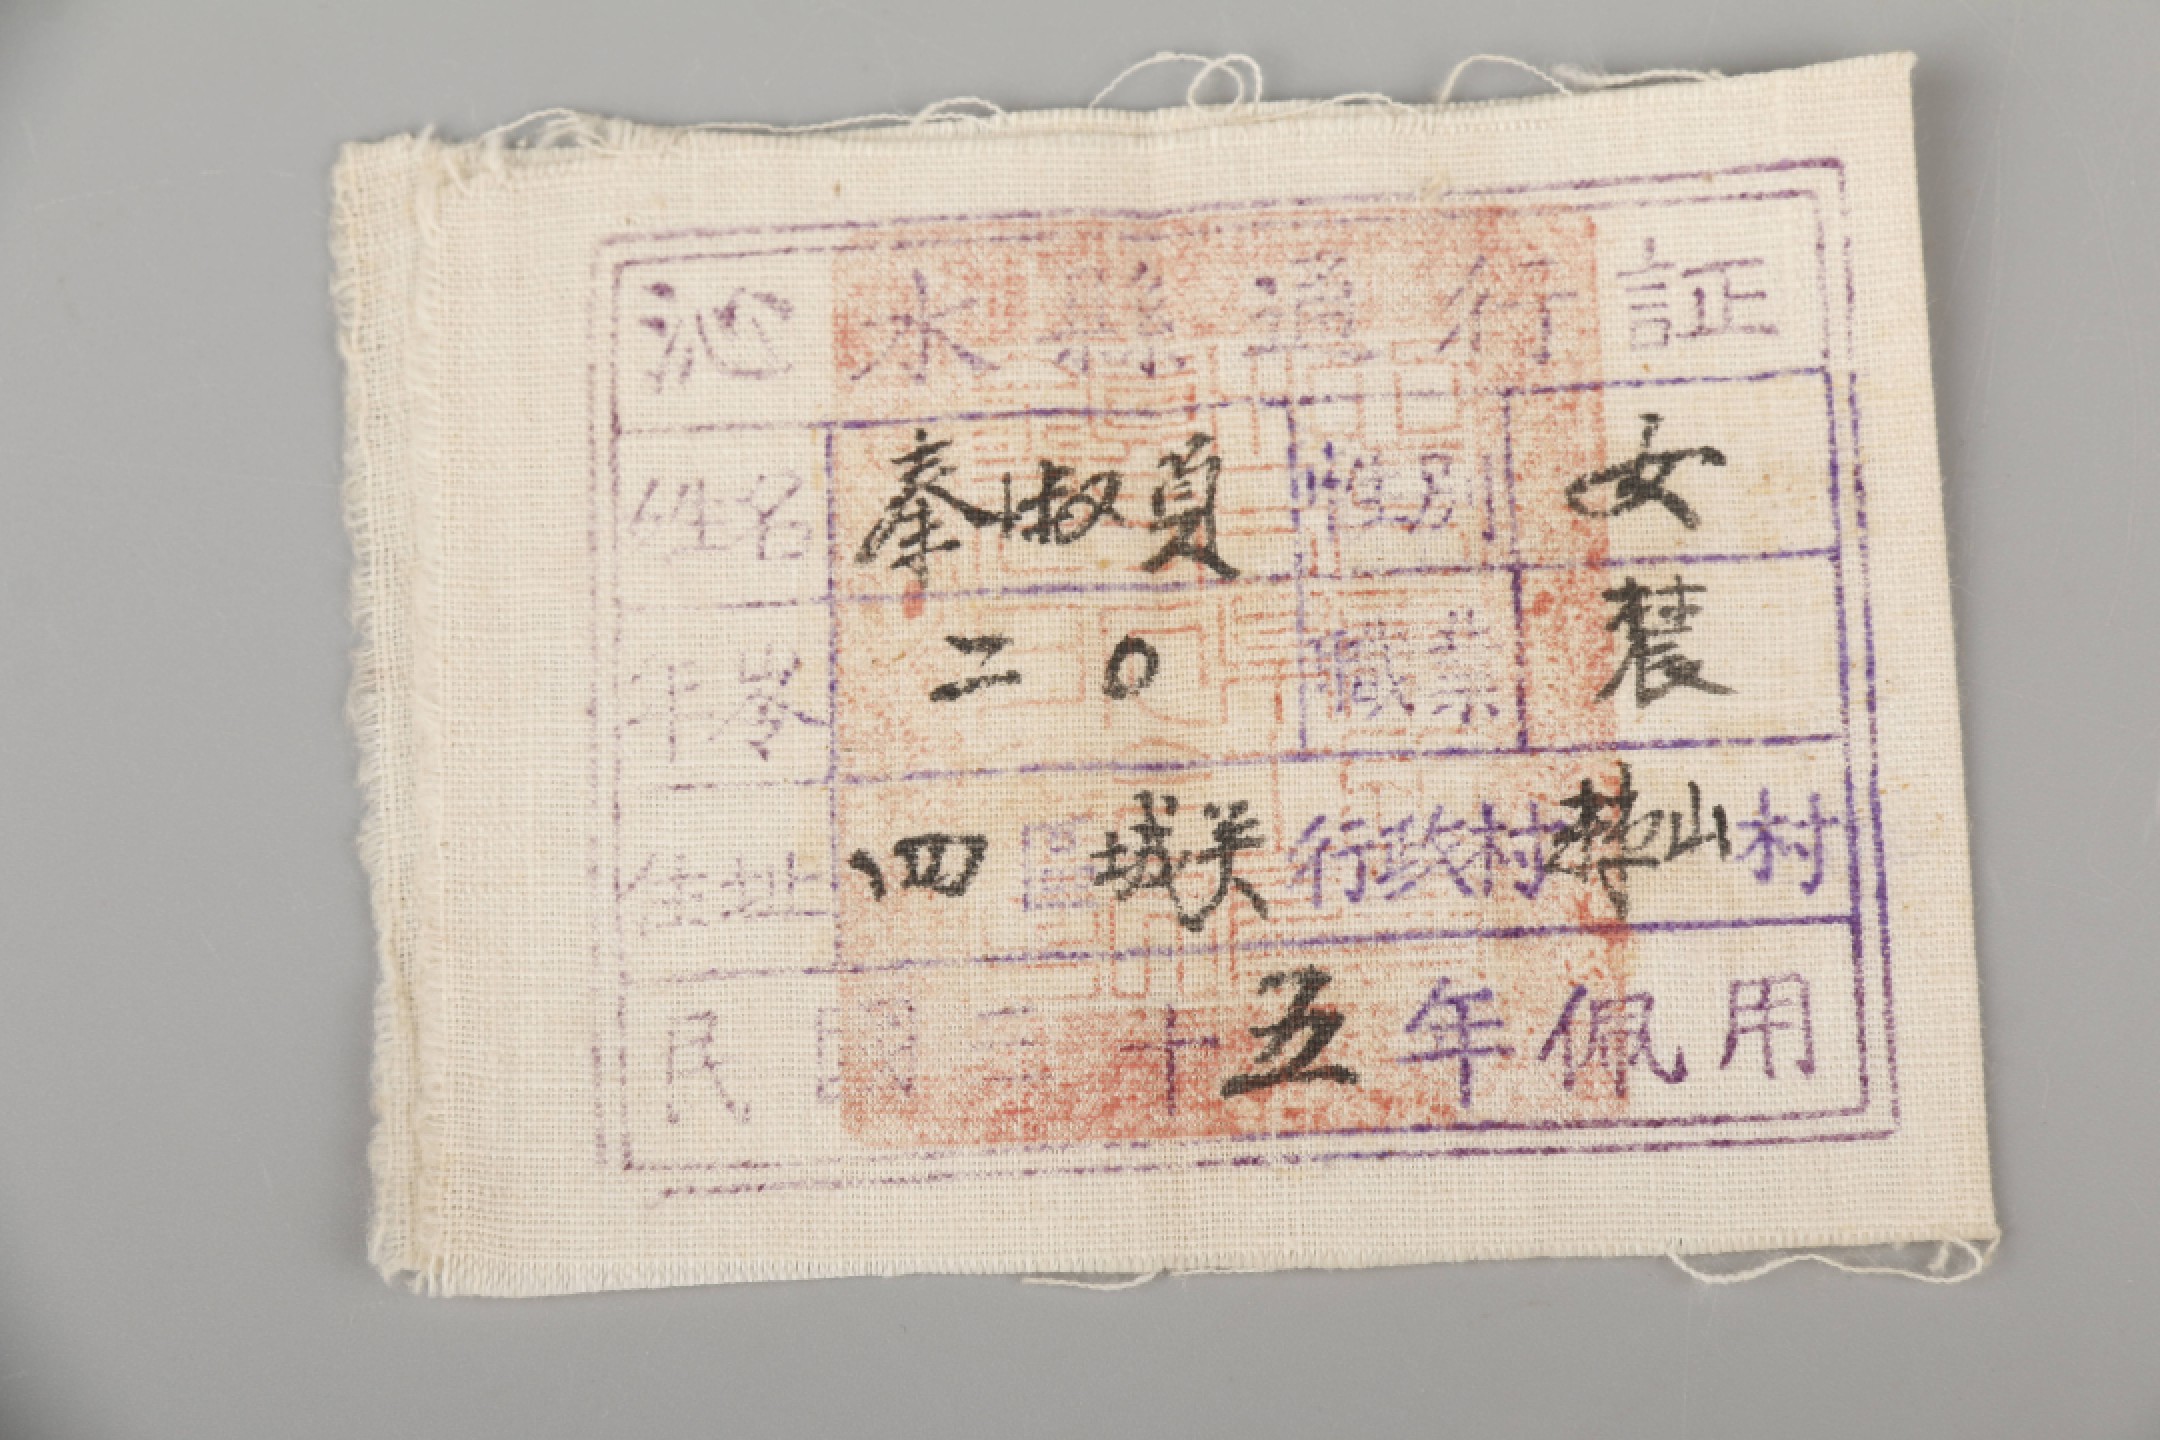 沁水縣通行証
姓名 秦淑貞 性别 女
年岺 二〇 職業 農
住址 四區城关行政村山村
民國三十五年佩用